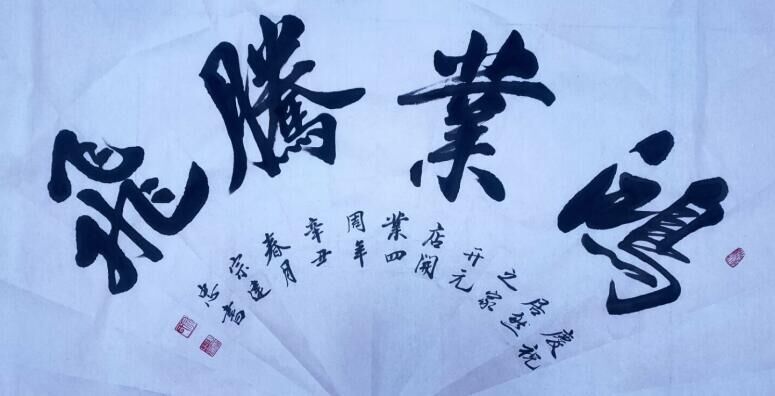 鴻業騰飛
慶祝
居然
之家
开元
店開
業四
周年
辛丑
春月
宗
忠書